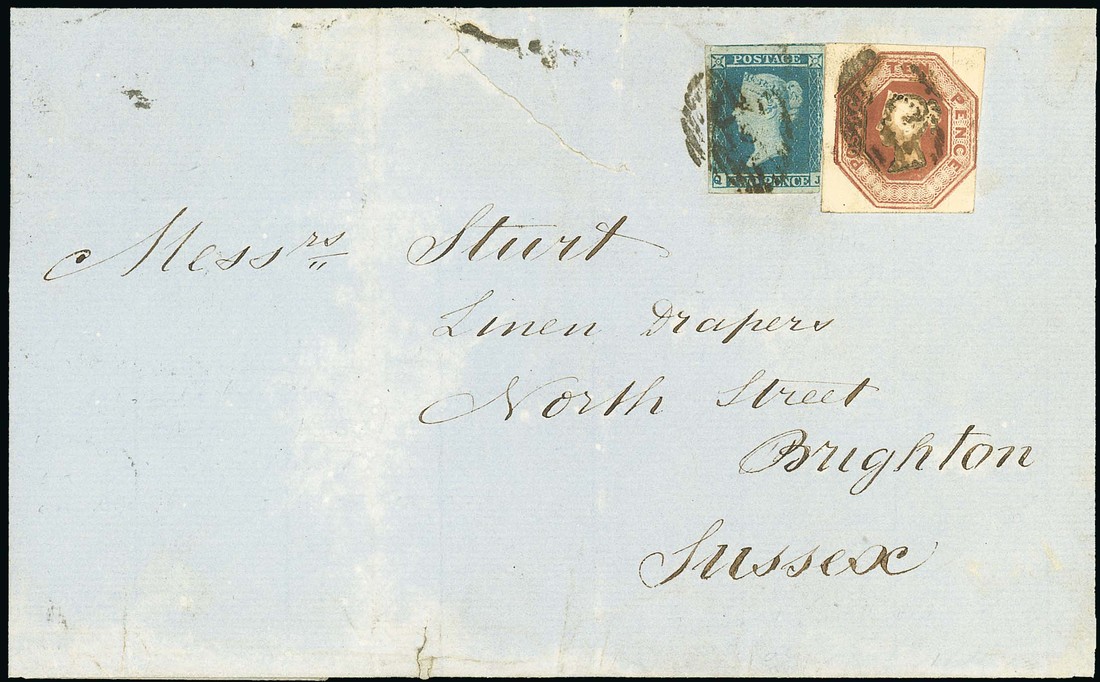 POSTAGE
TWO PENCE
Q J
TEN PENCE
POSTAGE
Messrs Sturt
Linen Drapers
North Street
Brighton
Sussex